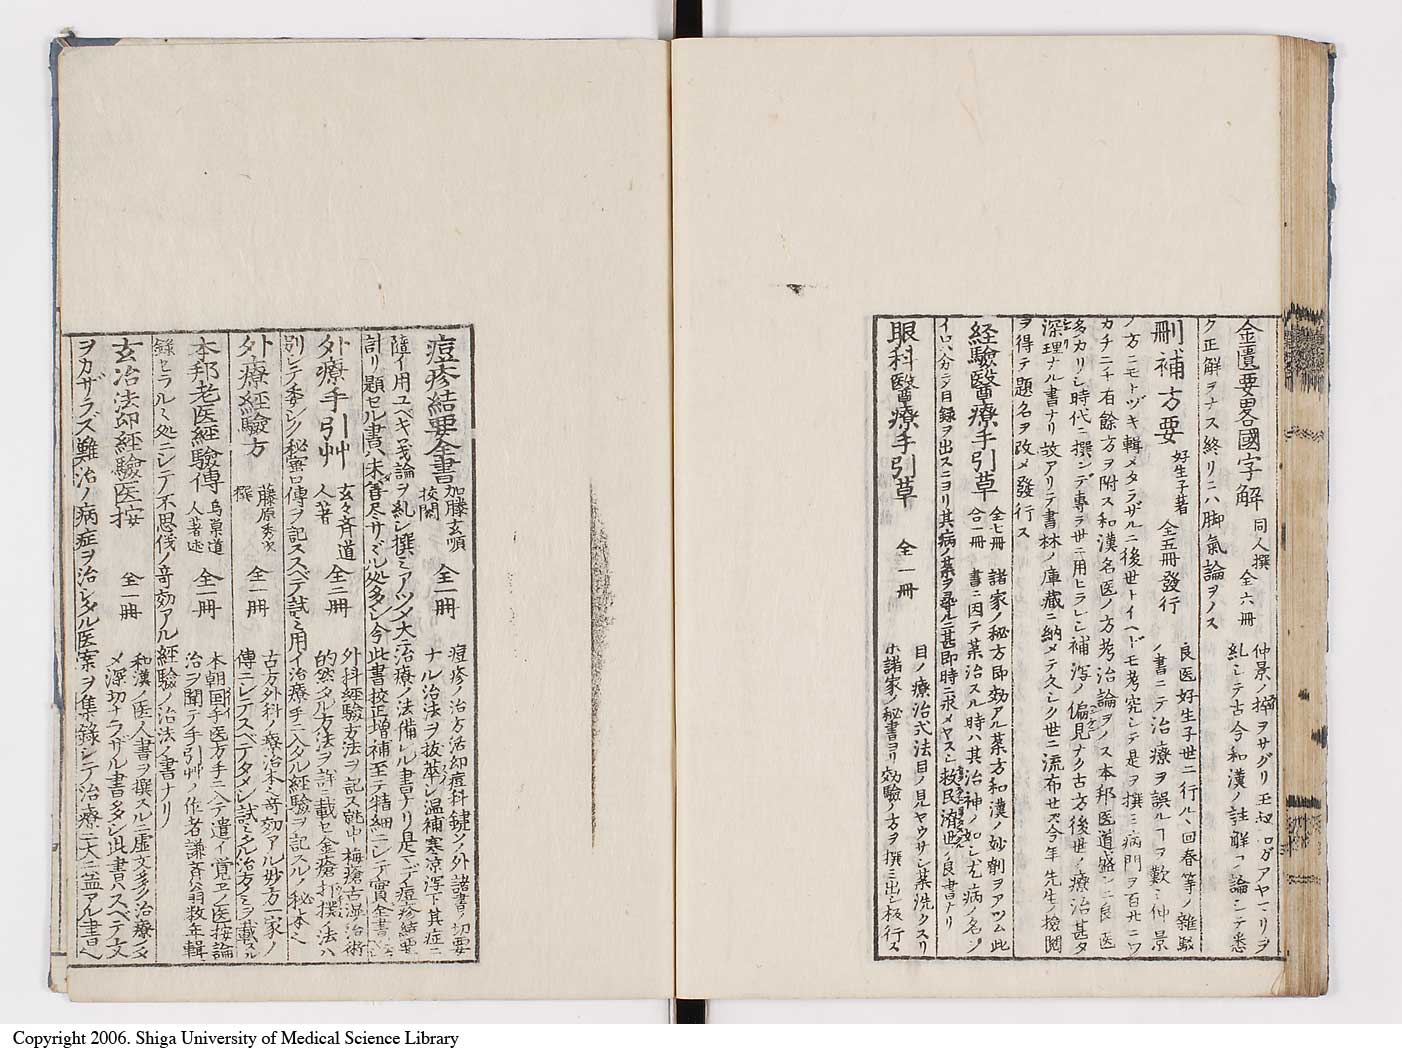 金遺要畧國字解 同人撰 全六冊 仲景ノ描ヲサグリ王叔ログアヤマリヲ
糺シテ古今和漢ノ註解ヲ論シテ悉
ク正解ヲナス終リニハ脚氣論ヲノス
刪補方要 好生子著 全五冊發行 良医好生子世ニ行ルヽ回春等ノ雜駁
ノ書ニテ治療ヲ誤ルヿヲ歎ミ仲景
ノ方ニモトヅキ輯メタラザルニ後世トイヘドモ考究シテ是ヲ撰ミ病門ヲ百廿ニワ
カチ二千有餘方ヲ附ス和漢名医ノ方考治論ヲノス本邦医道盛ンニ良医
多カリシ時代ニ撰シテ專ラ世ニ用ヒラレシ補瀉ノ偏見ナク古方後世ノ療治甚タ
深理ナル書ナリ故アリテ書林ノ庫蔵ニ納メテ久シク世ニ流布セズ今年先生ノ檢閲
ヲ得テ題名ヲ改メ發行ス
経驗醫療手引草 全七冊 合一冊 諸家ノ秘方即効アル薬方和漢ノ妙劑ヲアツム此
書ニ因テ薬治スル時ハ其治神ノ如シ尤病ノ名ヲ
イロハ分ニシ目録ヲ出スニヨリ其病ノ薬ヲ尋ルニ甚即時ニ求メヤスシ救民済世ノ良書ナリ
眼科醫療手引草 全一冊 目ノ療治式法目ノ見ヤウサシ薬洗クスリ
ホ諸家ノ秘書ヨリ効驗ノ方ヲ撰ミ出シ板行ス
痘疹結要全書 加藤玄順 校閲 全一冊 痘疹ノ治方活幼痘科鍵ソノ外諸書ノ切要
ナル治法ヲ抜萃シ温補寒凉瀉下其症ニ
隨イ用ユベキ義論ヲ糺シ撰ミアツメ大ニ治療ノ法備レル書ナリ是マデ痘疹結要
計リ題セル書ハ未善尽サヾル処多シ今此書校正増補至テ精細ニシテ實全書
外療手引艸 玄々斉道人著 全二冊 外科経驗方法ヲ記ス就中梅瘡古湿治術
的然タル方法ヲ詳ニ載セ金瘡打撲ノ法ハ
別シテ委シク秘密口傳ヲ記ススベテ試ミ用イ治療チニ入ル経驗ヲ記スルノ秘本ヘ
外療経驗方 藤原秀次撰 全一冊 古方外科ノ療治本ミ奇効アル妙方一家ノ
傳ニシテスベテタメシ試ミタル治方ミヲ載スル
本邦老医経驗傳 烏巣道人著述 全一冊 本朝国手医方手ニ入テ遣イ覚エノ医按論
治ヲ聞テ手引艸ノ作者謙斉翁数年輯
録セラルミ処ニシテ不思儀ノ奇効アル経驗ノ治法ノ書ナリ
玄治法印経驗医按 全一冊 和漢ノ医人書ヲ撰スルニ虚文多ク治療ノタ
メ深切ナラザル書多タシ此書ハスベテ文
ヲカザラズ難治ノ病症ヲ治シタル医案ヲ集録シテ治療ニ大ニ益アル書ヘ
Copyright 2006. Shiga University of Medical Science Library